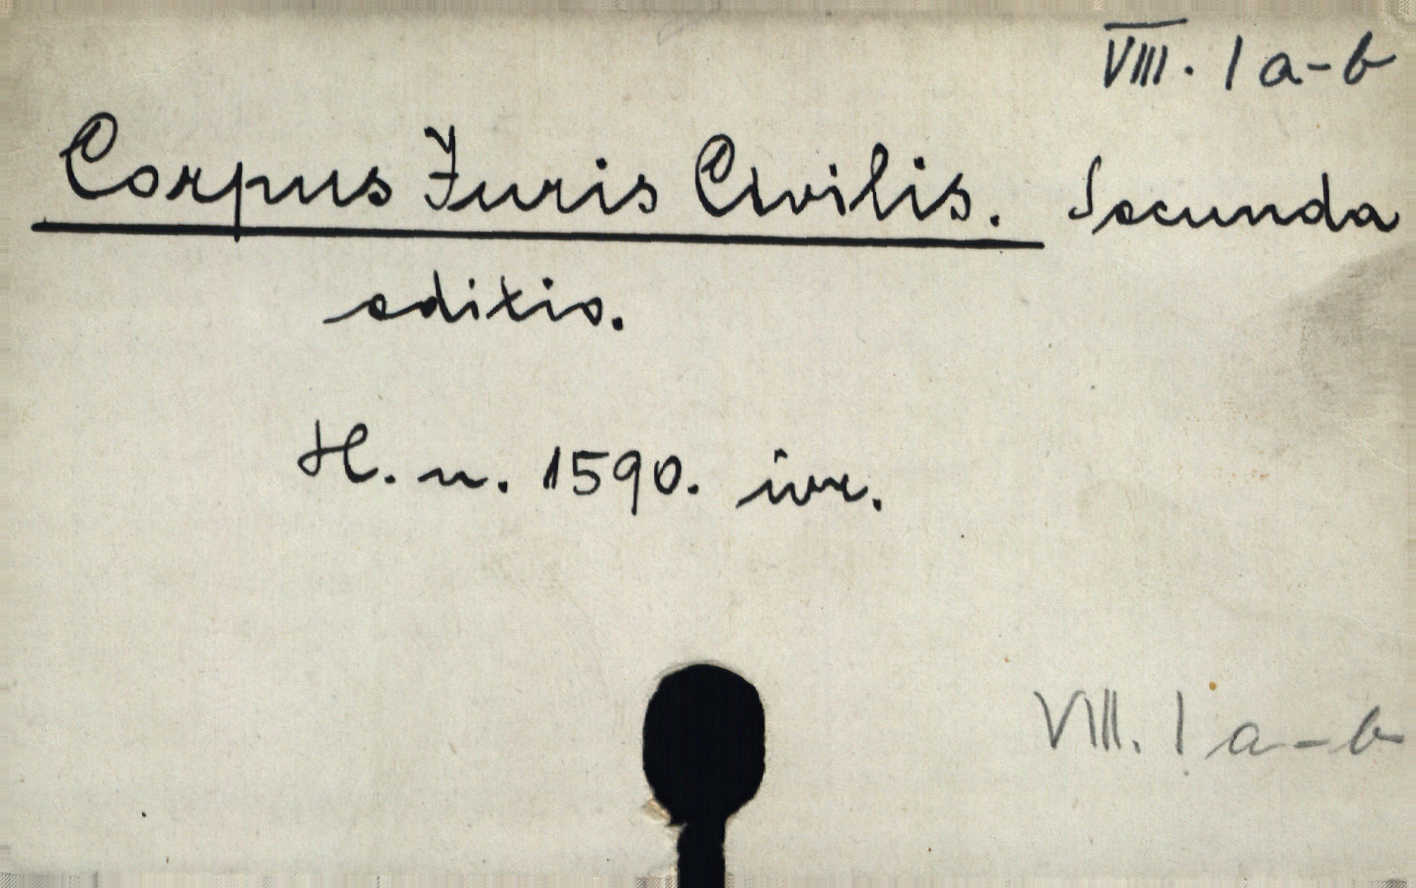 VIII. 1 a-b
Corpus Juris Civilis. Secunda
editio.
H. n. 1590. ivr.
VIII. 1 a-b